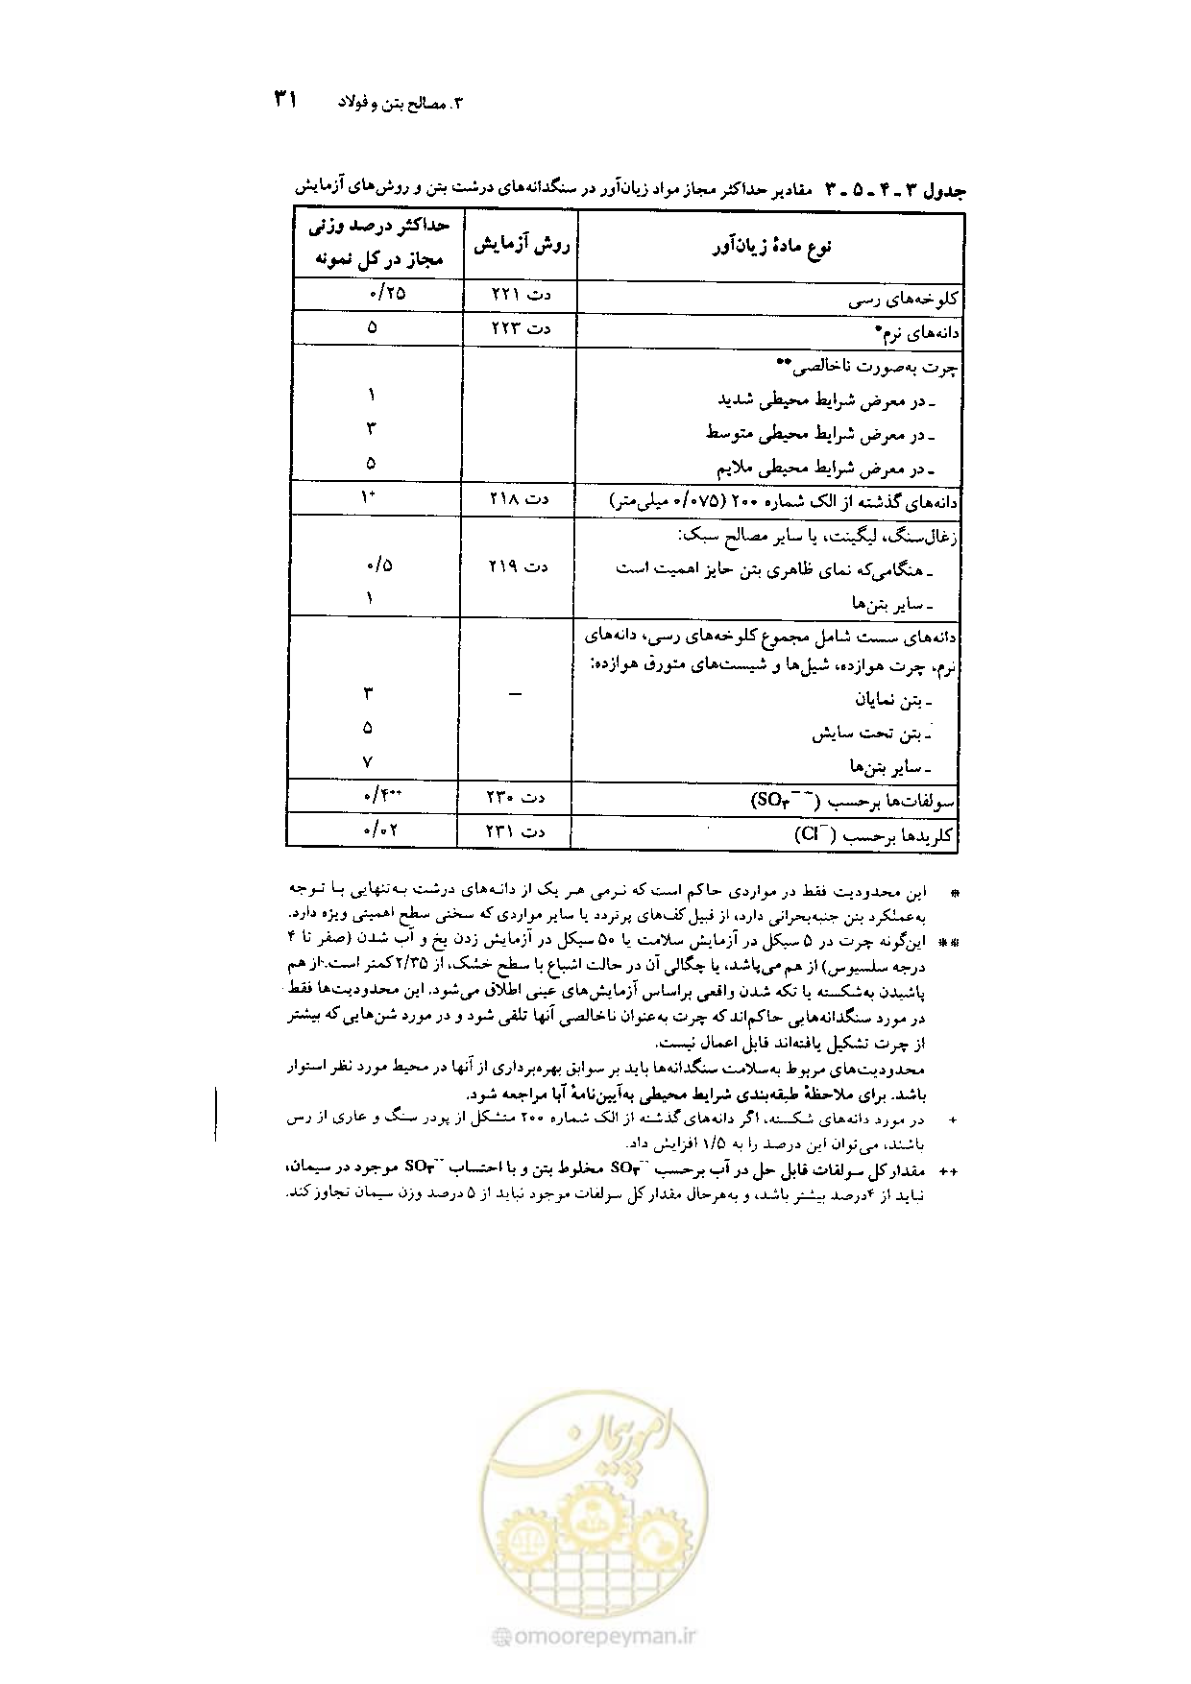 ۳. مصالح بتن و فولاد ۳۱
جدول ۳ـ۴ـ۵ـ۳ مقادیر حداکثر مجاز مواد زیان‌آور در سنگدانه‌های درشت بتن و روش‌های آزمایش
نوع مادهٔ زیان‌آور روش آزمایش حداکثر درصد وزنی
مجاز در کل نمونه
کلوخه‌های رسی دت ۲۲۱ ۰/۲۵
دانه‌های نرم* دت ۲۲۳ ۵
چرت به‌صورت ناخالصی**
ـ در معرض شرایط محیطی شدید ۱
ـ در معرض شرایط محیطی متوسط ۳
ـ در معرض شرایط محیطی ملایم ۵
دانه‌های گذشته از الک شماره ۲۰۰ (۰/۰۷۵ میلی‌متر) دت ۲۱۸ ۱+
زغال‌سنگ، لیگینت، یا سایر مصالح سبک:
ـ هنگامی‌که نمای ظاهری بتن حایز اهمیت است دت ۲۱۹ ۰/۵
ـ سایر بتن‌ها ۱
دانه‌های سست شامل مجموع کلوخه‌های رسی، دانه‌های
نرم، چرت هوازده، شیل‌ها و شیست‌های متورق هوازده:
ـ بتن نمایان — ۳
ـ بتن تحت سایش ۵
ـ سایر بتن‌ها ۷
سولفات‌ها برحسب (SO۳⁻⁻) دت ۲۳۰ ۰/۴++
کلریدها برحسب (Cl⁻) دت ۲۳۱ ۰/۰۲
* این محدودیت فقط در مواردی حاکم است که نرمی هر یک از دانه‌های درشت به‌تنهایی با توجه
به‌عملکرد بتن جنبه‌بحرانی دارد، از قبیل کف‌های پرتردد یا سایر مواردی که سختی سطح اهمیتی ویژه دارد.
** این‌گونه چرت در ۵ سیکل در آزمایش سلامت یا ۵۰ سیکل در آزمایش زدن یخ و آب شدن (صفر تا ۴
درجه سلسیوس) از هم می‌پاشد، یا چگالی آن در حالت اشباع با سطح خشک، از ۲/۳۵ کمتر است. از هم
پاشیدن به‌شکسته یا تکه شدن واقعی براساس آزمایش‌های عینی اطلاق می‌شود. این محدودیت‌ها فقط
در مورد سنگدانه‌هایی حاکم‌اند که چرت به‌عنوان ناخالصی آنها تلقی شود و در مورد شن‌هایی که بیشتر
از چرت تشکیل یافته‌اند قابل اعمال نیست.
محدودیت‌های مربوط به‌سلامت سنگدانه‌ها باید بر سوابق بهره‌برداری از آنها در محیط مورد نظر استوار
باشد. برای ملاحظهٔ طبقه‌بندی شرایط محیطی به‌آیین‌نامهٔ آبا مراجعه شود.
+ در مورد دانه‌های شکسته، اگر دانه‌های گذشته از الک شماره ۲۰۰ متشکل از پودر سنگ و عاری از رس
باشند، می‌توان این درصد را به ۱/۵ افزایش داد.
++ مقدار کل سولفات قابل حل در آب برحسب SO۳⁻⁻ مخلوط بتن و با احتساب SO۳⁻⁻ موجود در سیمان،
نباید از ۴درصد بیشتر باشد، و به‌هرحال مقدار کل سولفات موجود نباید از ۵ درصد وزن سیمان تجاوز کند.
امور پیمان
@omoorepeyman.ir